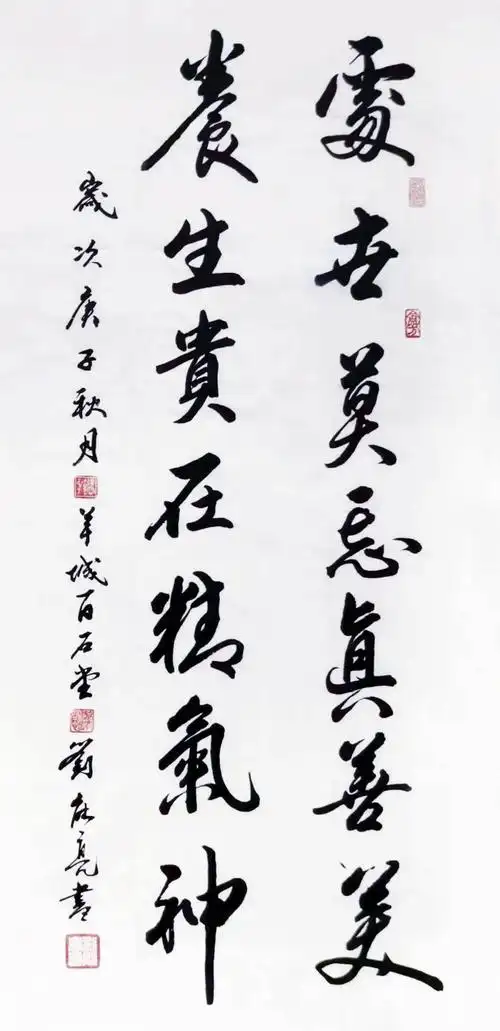 處世莫忘真善美
養生貴在精氣神
歲次庚子秋月羊城百石堂劉友亮書